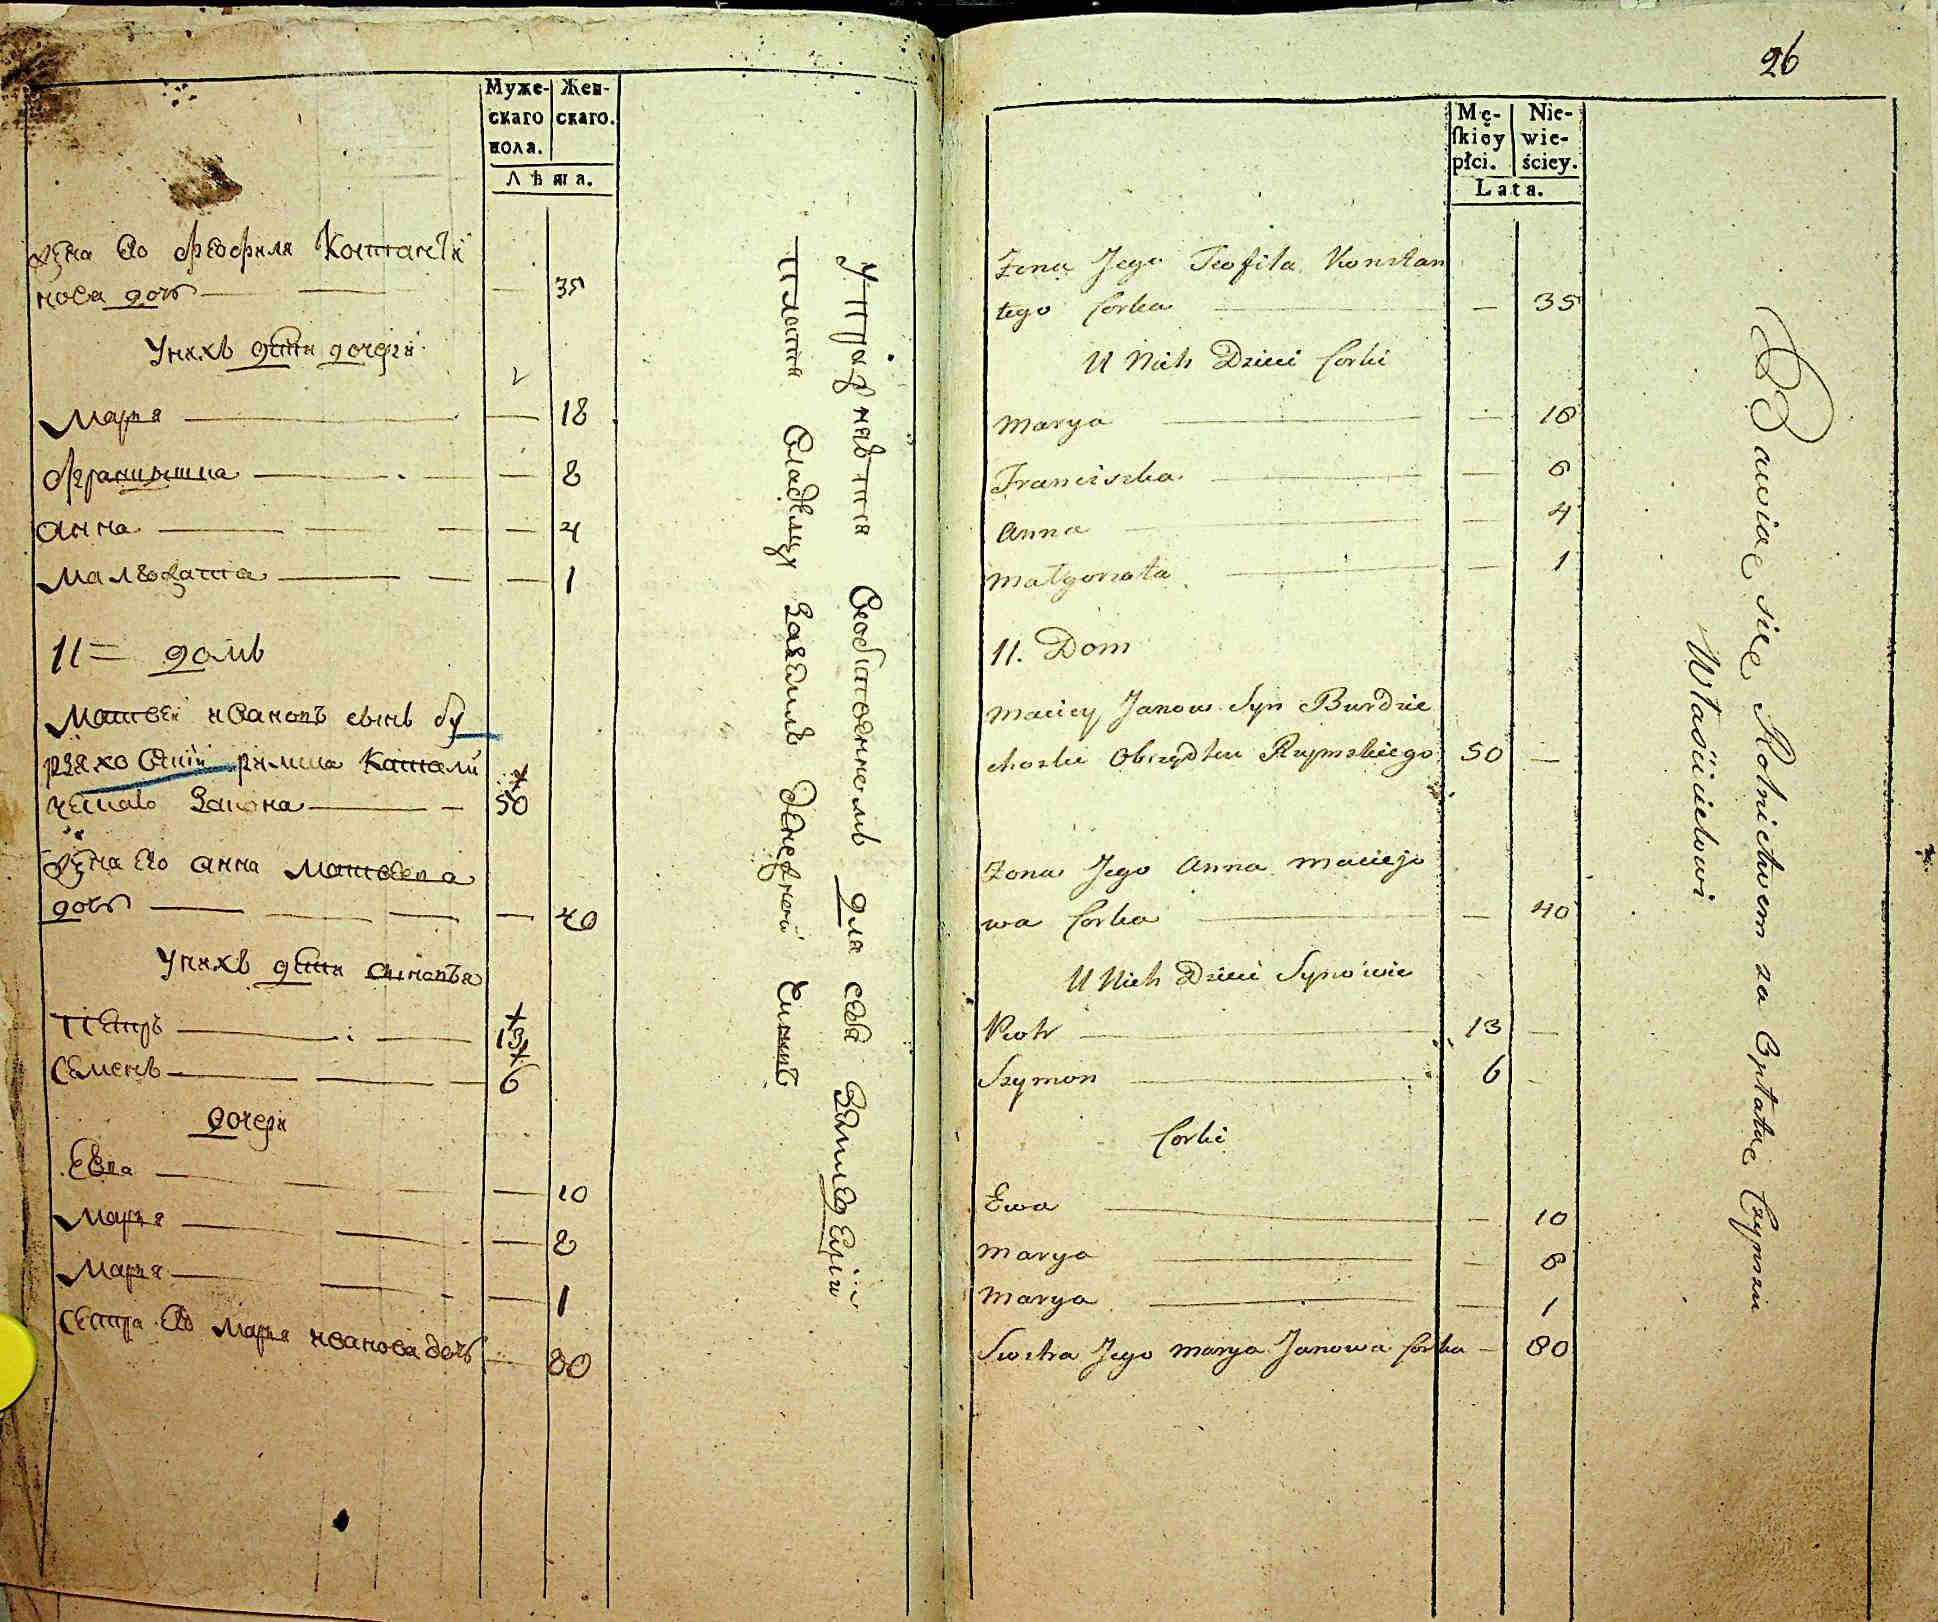 Муже-
скаго
пола.
Жен-
скаго.
Лѣта.
Жена Его Феофиля Константи
нова дочь — 35
У них дети дочери
Марья — 18
Францишка — 8
Анна — 4
Малгожата — 1
11 = домъ
Матвей Ивановъ сынъ Бу
рдзяховский римша Катали
ческаго Закона — 50
Жена Его Анна Матвеева
дочь — 40
У нихъ дети сыновья
Петръ — 13
Семенъ — 6
Дочери
Евва — 10
Марья — 8
Марья — 1
Сестра Его Марья Иванова дочь — 80
Упражняется Собственномъ для себя Земледелии
Платя Владельцу Земли денежной Чиншъ
26
Mę-
ſkiey
płci.
Nie-
wie-
ściey.
Lata.
Zona Jego Teofila Konstan
tego Corka — 35
U Nich Dzieci Corki
Marya — 18
Franciszka — 8
Anna — 4
Małgorzata — 1
11. Dom
Maciey Janow Syn Burdzie
choski Obrządku Rzymskiego 50 —
Zona Jego Anna Maciejo
wa Corka — 40
U Nich Dzieci Synowie
Piotr — 13 —
Szymon — 6 —
Corki
Ewa — 10
Marya — 8
Marya — 1
Siostra Jego Marya Janowa Corka — 80
Bawiąc się Rolnictwem za Opłatą Czynszu
Właścicielowi